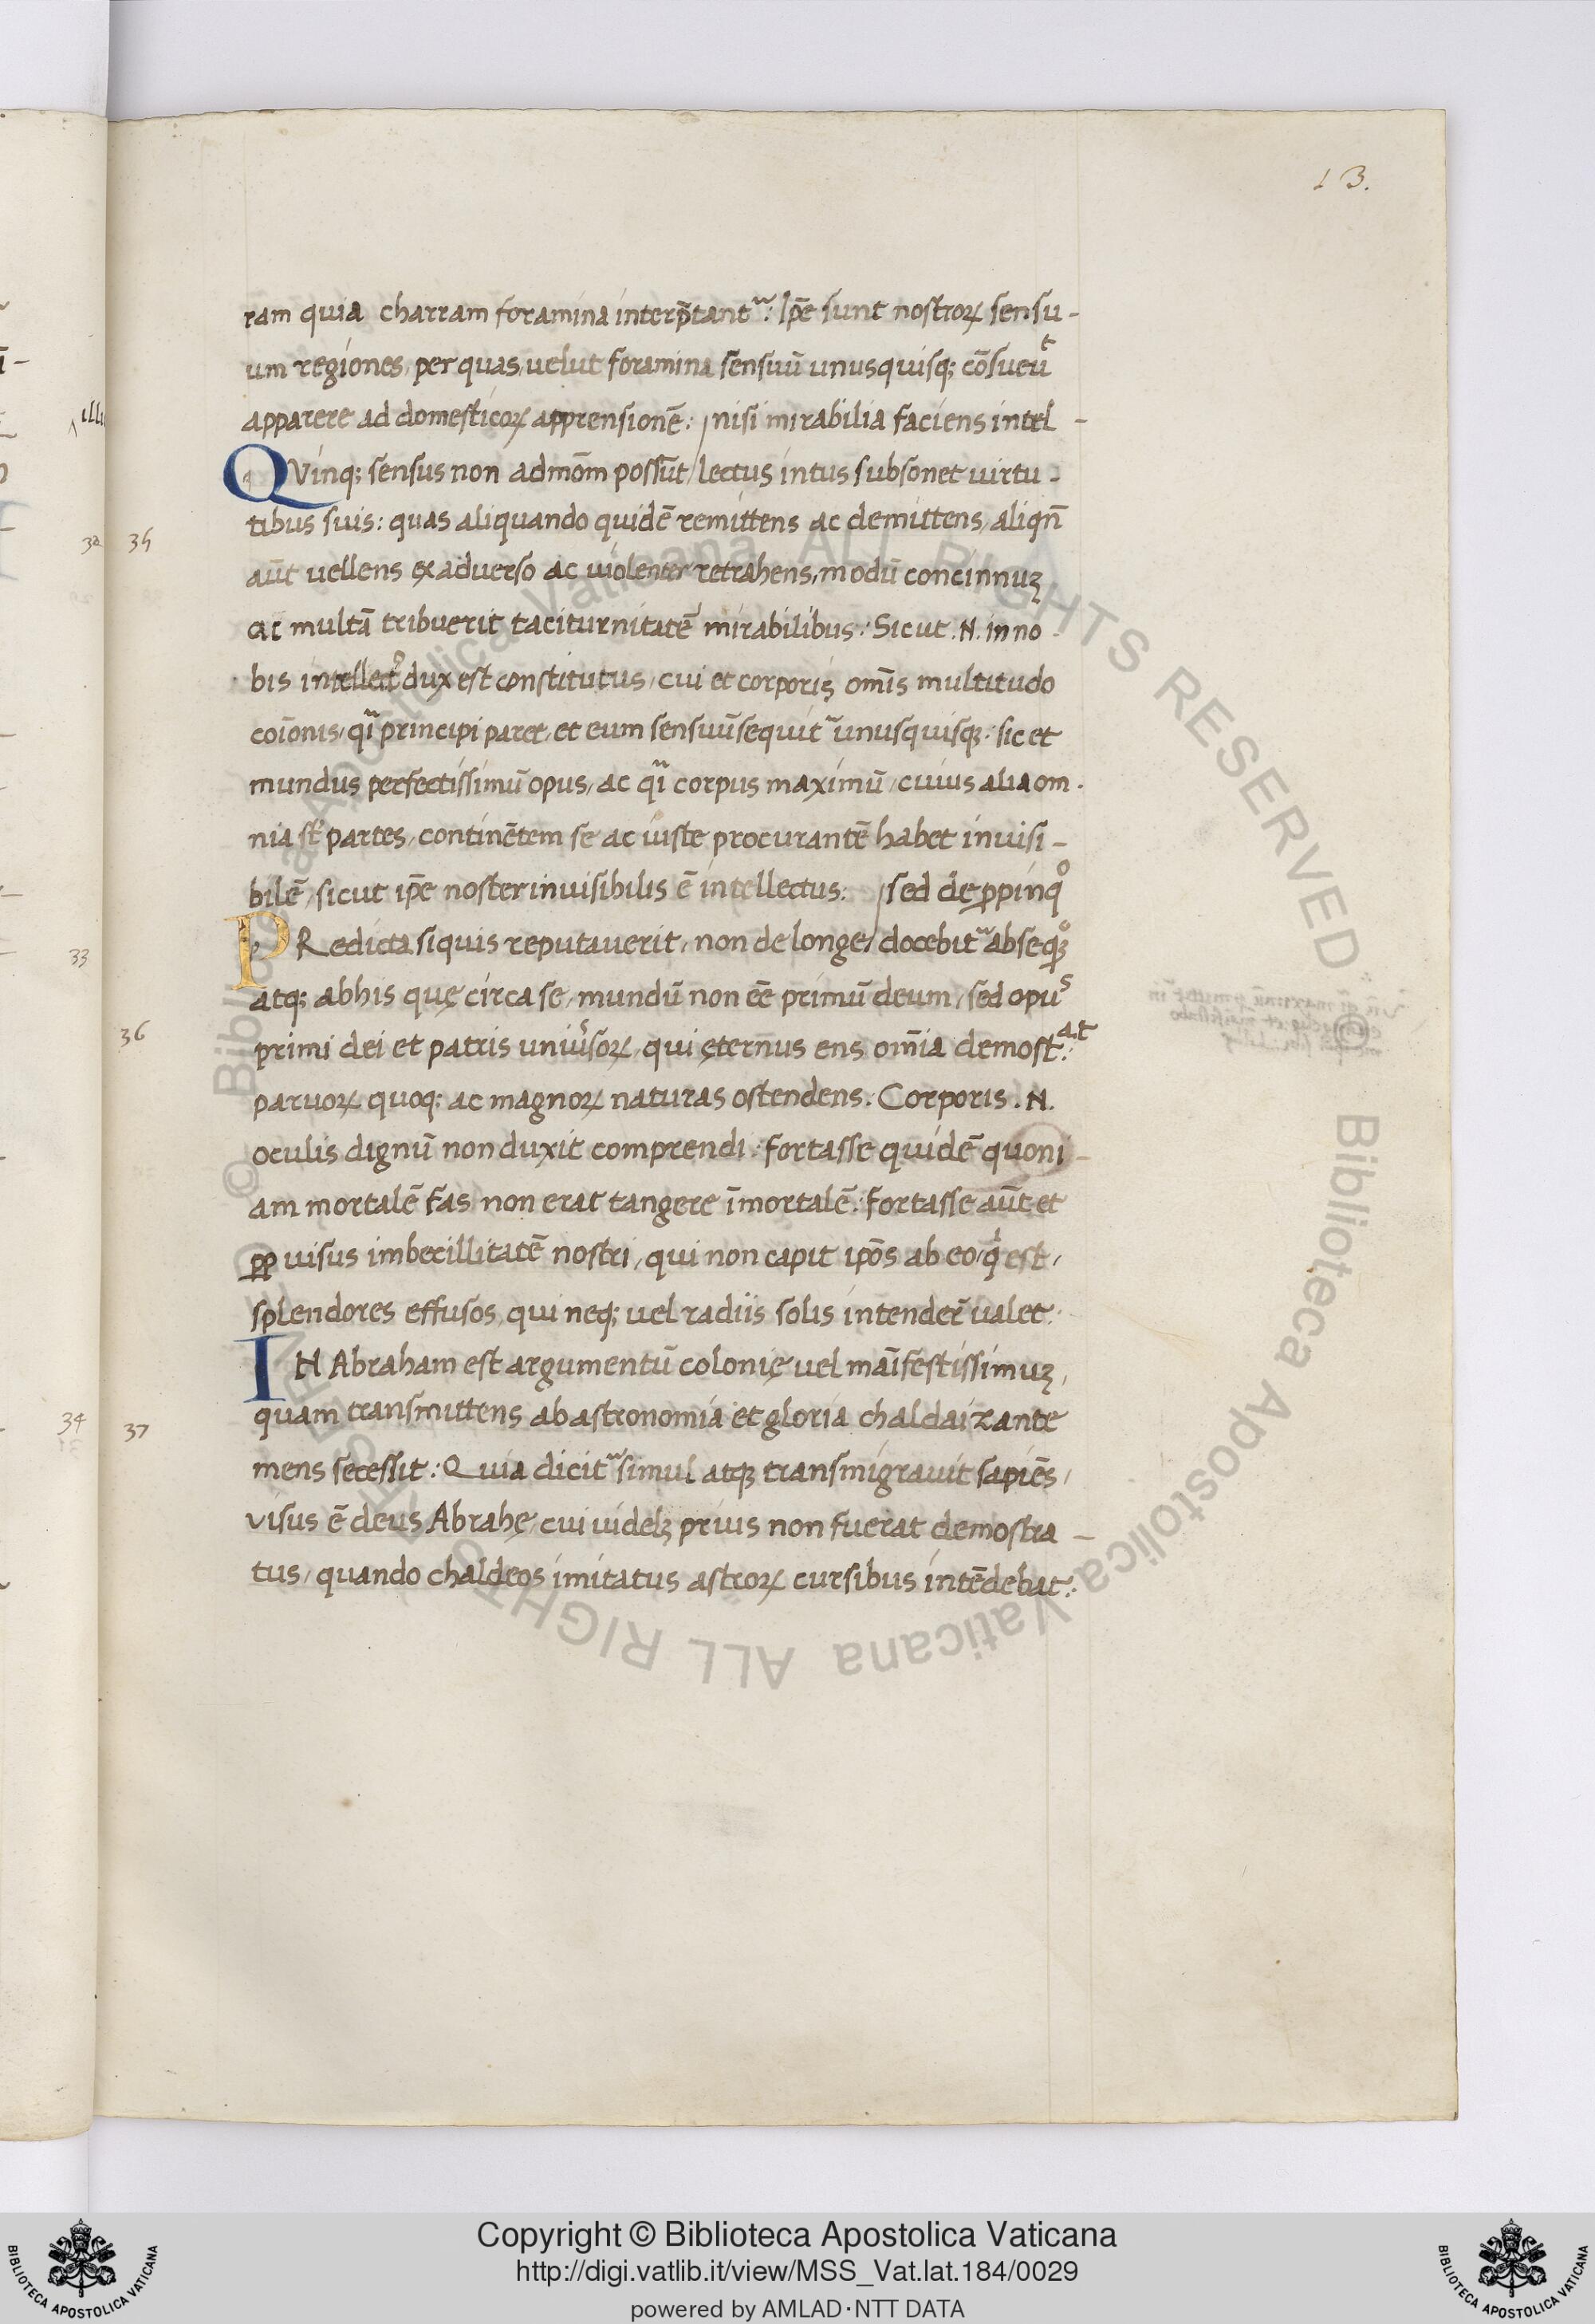 13.
ram quia charram foramina interp̄tantᵘʳ: Ip̄e sunt nostroꝝ sensu-
um regiones, per quas, uelut foramina sensuū unusquisq; cōsueuͭ
apparere ad domesticoꝝ apprensionē: nisi mirabilia faciens intel-
QVinq; sensus non admōm possūt lectus intus subsonet uirtu-
35
tibus suis: quas aliquando quidē remittens ac demittens, aliqn̄
aūt uellens ex aduerso ac uiolenter retrahens, modū concinnuꝫ
ac multā tribuerit taciturnitatē mirabilibus: Sicut .N. in no-
bis intellectꝰ dux est constitutus, cui et corporis om̄is multitudo
coīonis, qͣi principi paret, et eum sensuū sequitᵘʳ unusquisqꝫ: sic et
mundus perfectissimū opus, ac qͣi corpus maximū, cuius alia om-
nia st̄ partes, continētem se ac iuste procurantē habet inuisi-
bilē, sicut ip̄e noster inuisibilis ē intellectus: sed de ꝓpinqͦ
PRedicta siquis reputauerit, non de longe, docebitᵘʳ abseqꝫͦ
atq; abhis quę circa se, mundū non eē primū deum, sed opuˢ
36
primi dei et patris uniũsoꝝ, qui ęternus ens om̄ia demostᵃᵗ:
paruoꝝ quoq; ac magnoꝝ naturas ostendens: Corporis .N.
oculis dignū non duxit comprendi: fortasse quidē quoni-
am mortalē fas non erat tangere īmortalē: fortasse aūt et
ꝓp uisus imbecillitatē nostri, qui non capit ip̄os ab eo, qͥ est,
splendores effusos, qui neq; uel radiis solis intender̄ ualet:
IN Abraham est argumentū colonię uel maīfestissimuꝫ,
37
quam transmittens ab astronomia et gloria chaldaizante
mens secessit: Quia dicitᵘʳ simul atqꝫ transmigrauit sapiēs,
uisus ē deus Abrahę, cui uidelꝫ prius non fuerat demostra-
tus, quando chaldeos imitatus astroꝝ cursibus intēdebat:
illu
32
33
34
© Biblioteca Apostolica Vaticana ALL RIGHTS RESERVED
© Biblioteca Apostolica Vaticana ALL RIGHTS RESERVED
Copyright © Biblioteca Apostolica Vaticana
http://digi.vatlib.it/view/MSS_Vat.lat.184/0029
powered by AMLAD·NTT DATA
BIBLIOTECA APOSTOLICA VATICANA
BIBLIOTECA APOSTOLICA VATICANA